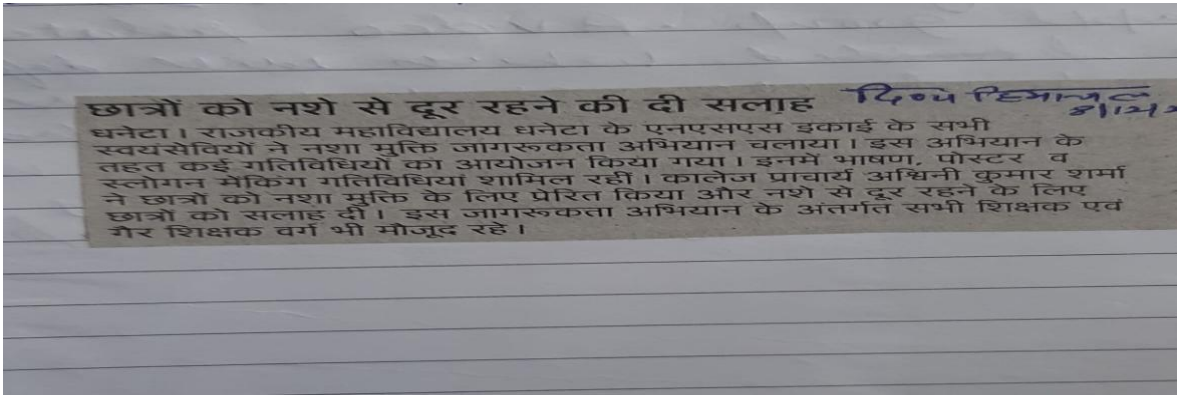 छात्रों को नशे से दूर रहने की दी सलाह दिव्य हिमाचल
8/12/2
धनेटा। राजकीय महाविद्यालय धनेटा के एनएसएस इकाई के सभी
स्वयंसेवियों ने नशा मुक्ति जागरूकता अभियान चलाया। इस अभियान के
तहत कई गतिविधियों का आयोजन किया गया। इनमें भाषण, पोस्टर व
स्लोगन मेकिंग गतिविधियां शामिल रहीं। कालेज प्राचार्य अश्विनी कुमार शर्मा
ने छात्रों को नशा मुक्ति के लिए प्रेरित किया और नशे से दूर रहने के लिए
छात्रों को सलाह दी। इस जागरूकता अभियान के अंतर्गत सभी शिक्षक एवं
गैर शिक्षक वर्ग भी मौजूद रहे।